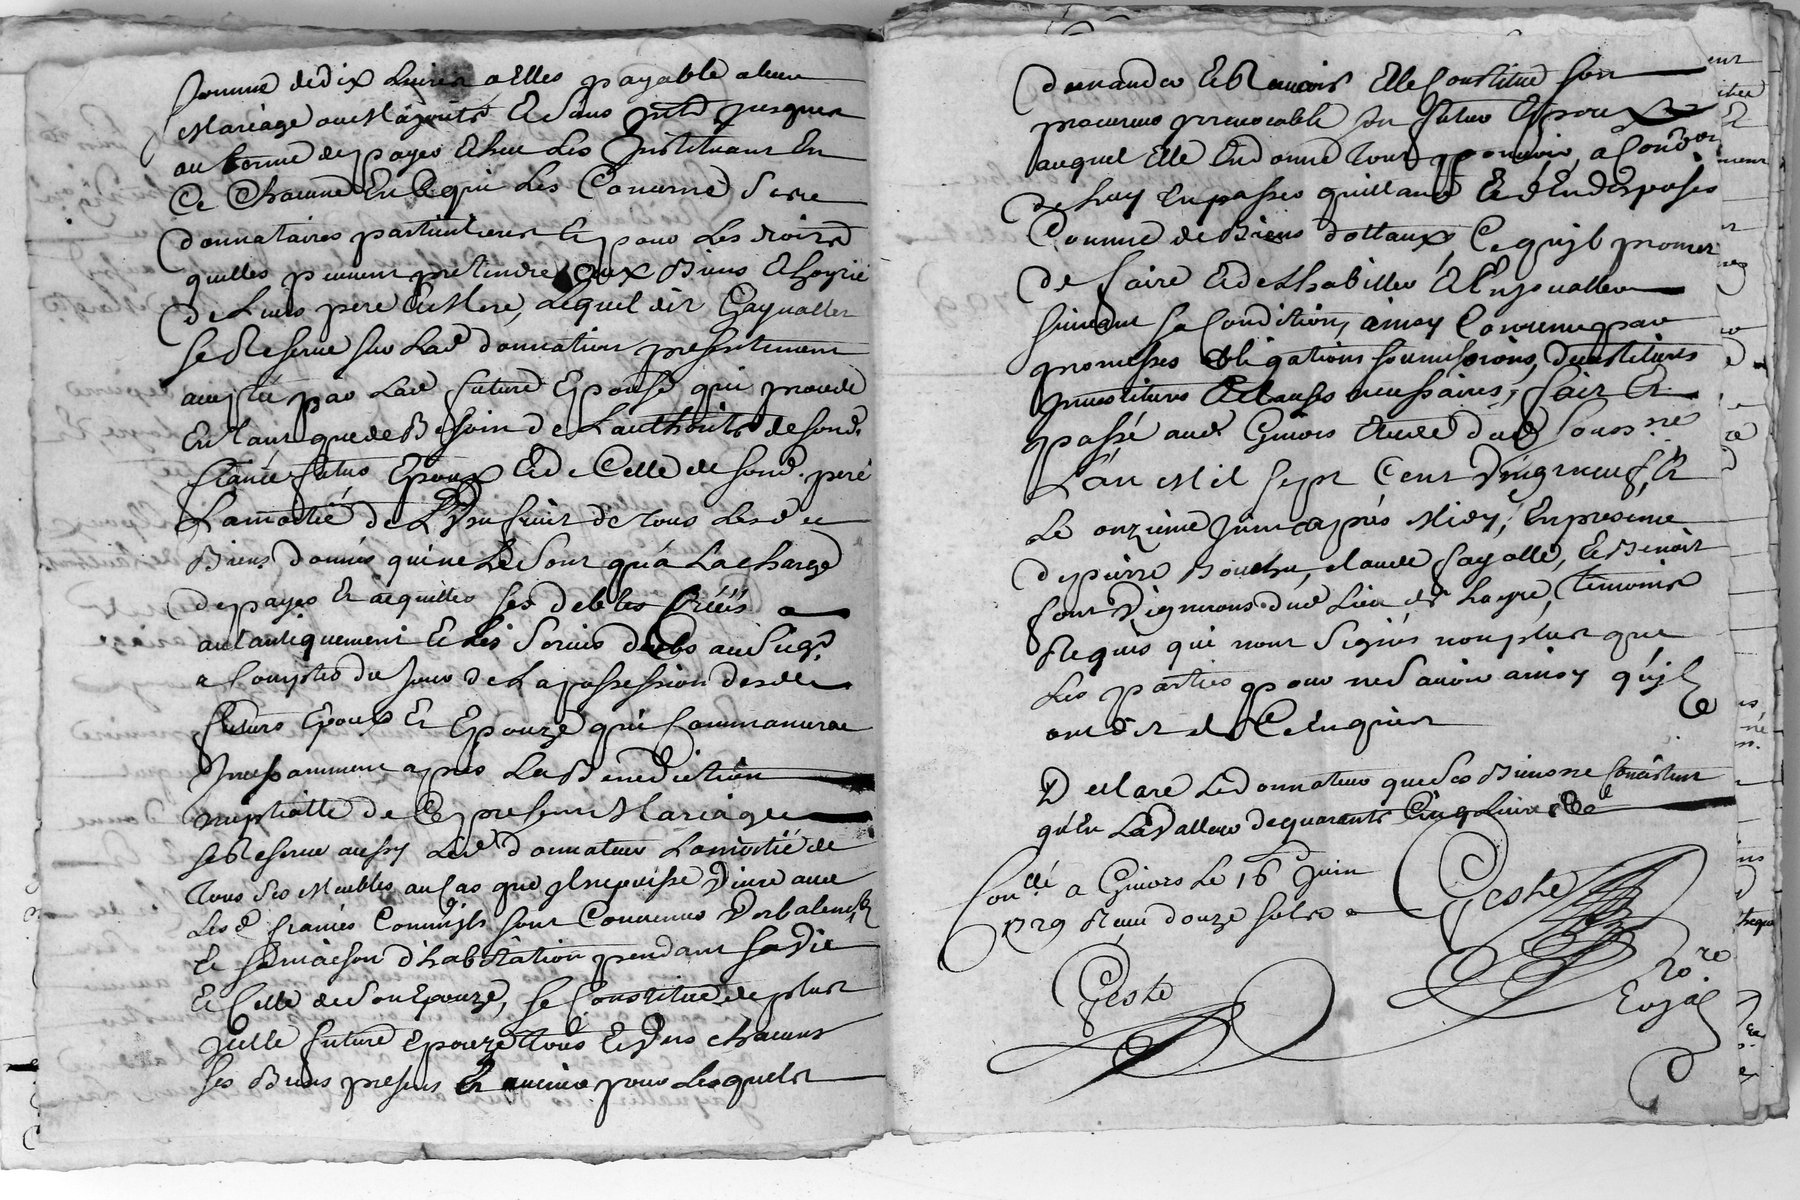 somme de dix Livres a Elles payable a leur
Mariage ou Majorité Et sans jusques
au terme de payer Et heu Les Instituant En
Ce Chacune En Ce qui Les Concerne
donnataires particulieres Et pour Les droits
quelles peuvent pretendre aux Biens Et hoyrie
de Leurs pere Et Mere, Lequel dit Gaynallet
se Reserve sur Lad. donnation presentement
acceptée par Lad. future Epouse qui procede
En tant que de Besoin de Lauthorité de sond.
fiancé futur Epoux Et de Celle de sond. pere
La moitié de L'Usufruit de tous Lesd.
Biens donnés qui ne Le sont qu'a La charge
de payer Et acquitter ses debtes Créés
autantiquement Et Les servis deubs au Seigr.
a Compter du Jour de La possession desd.
futurs Epoux Et Epouze qui Commancera
Incessamment apres La Benediction
nuptialle de Ce present Mariage
se Reserve aussy Led. donnateur La moitié de
tous ses Meubles au Cas que il ne puisse Vivre avec
Lesd. fiancés Comm'ils sont Convenus Verbalement
Et sa maison d'habitation pendant sa Vie
Et Celle de son Epouze, se Constitue de plus
future Epouze tous Et Uns chacuns
ses Biens presens Et avenir pour Lesquels
demander Et Recevoir Elle Constitue son
procureur irrevocable sond. futur Epoux
auquel Elle En donne tout pouvoir, a Condon
de luy En passer quittance Et d'En disposer
Comme de Biens dottaux Ce qu'il promet
de faire Et de L'habiller Et Enjoualler
suivant sa Condition, ainsy Convenu par
promesses obligations soumissions,
Et Clauses necessaires, fait Et
passé aud. Givors Etude dud.
L'an Mil sept Cent Vingt neuf, Et
Le onzieme Juin apres Midy, En presence
de pierre Bouchu, claude fayolle, Et Benoit
Vignerons dud. Lieu de Loyre, temoins
Requis qui n'ont Signés non plus que
Les parties pour ne Savoir ainsy qu'ils
ont dit de Ce Enquis
Declare Led. donnateur que Ses Biens ne Consistent
qu'En La Valleur de quarante Cinq Livres
Conllé a Givors Le 16 Juin
1729 Receu douze sols
Geste
Geste
Nore
Royal